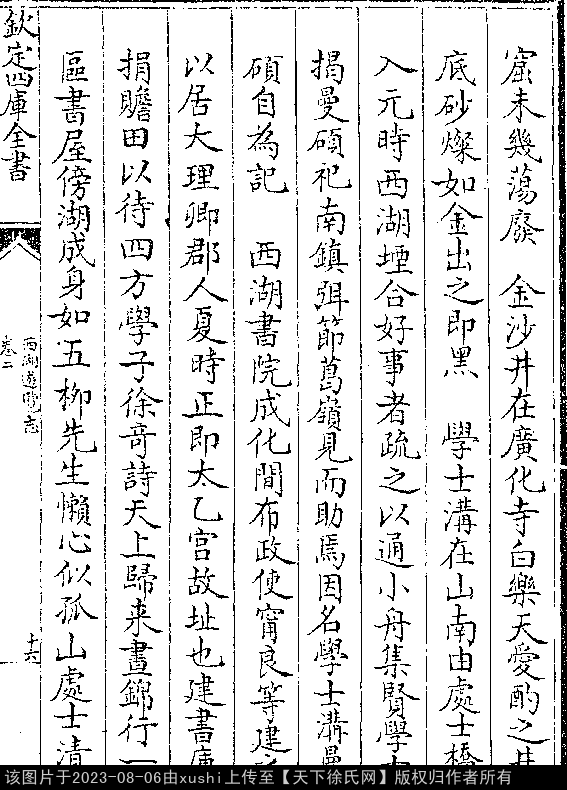 窟未幾蕩廢　金沙井在廣化寺白樂天愛酌之井
底砂燦如金出之即黑　學士溝在山南由處士橋
入元時西湖堙合好事者疏之以通小舟集賢學士
揭曼碩祀南鎮弭節葛嶺見而助焉因名學士溝曼
碩自為記　西湖書院成化間布政使甯良等建
以居大理卿郡人夏時正即太乙宮故址也建書庫
捐贍田以待四方學子徐奇詩天上歸来晝錦行一
區書屋傍湖成身如五栁先生懶心似孤山處士清
欽定四庫全書
西湖遊覽志
卷二
十六
该图片于2023-08-06由xushi上传至【天下徐氏网】版权归作者所有